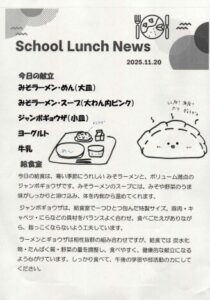 School Lunch News
2025.11.20
今日の献立
みそラーメン・めん(大皿)
みそラーメン・スープ(大わん内ピンク)
ジャンボギョウザ(小皿)
ヨーグルト
牛乳
給食室
今日の給食は、寒い季節にうれしいみそラーメンと、ボリューム満点の
ジャンボギョウザです。みそラーメンのスープには、みそや野菜のうま
味がしっかりと溶け込み、体を内側から温めてくれます。
ジャンボギョウザは、給食室で一つひとつ包んだ特製サイズ。豚肉・キ
ャベツ・にらなどの具材をバランスよく合わせ、食べごたえがありなが
ら、脂っこくならないよう工夫しています。
ラーメンとギョウザは相性抜群の組み合わせですが、給食では炭水化
物・たんぱく質・野菜の量を調整し、食べやすく、健康的な献立になる
よう心がけています。しっかり食べて、午後の学習や部活動の力にして
ください。